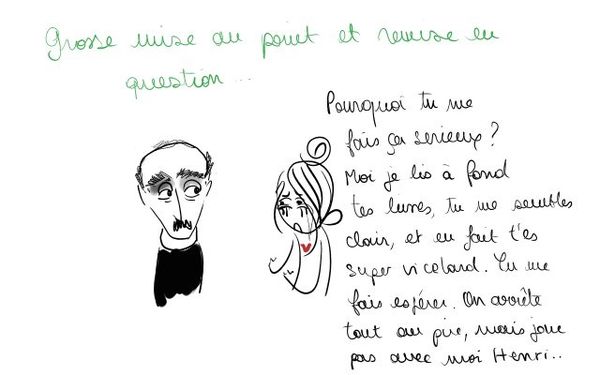 Grosse mise au point et remise en
question...
Pourquoi tu me
fais ça serieux?
Moi je lis à fond
tes livres, tu me sembles
clair, et en fait t'es
super vicelard. Tu me
fais espérer. On arrête
tout au pire, mais joue
pas avec moi Henri..